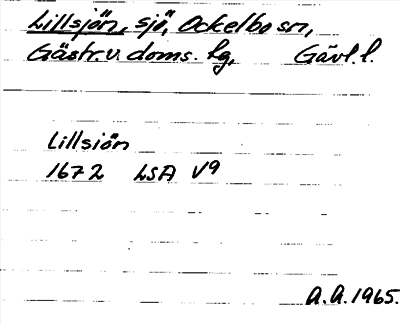 Lillsjön, sjö, Ockelbo sn,
Gästr. v. doms. hg, Gävl. l.
Lillsiön
1672 LSA V9
A.A. 1965.